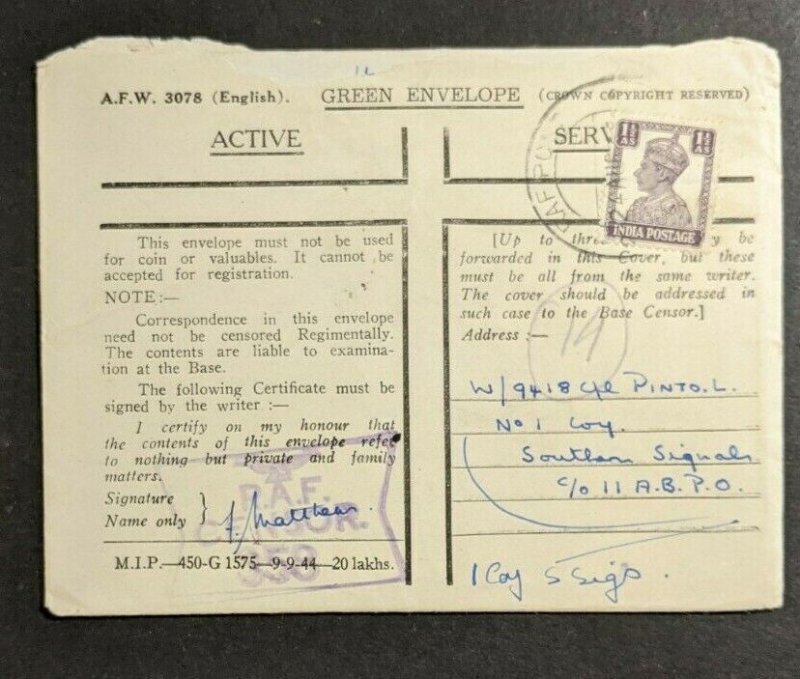 A.F.W. 3078 (English). GREEN ENVELOPE (CROWN COPYRIGHT RESERVED)
ACTIVE
This envelope must not be used
for coin or valuables. It cannot be
accepted for registration.
NOTE:—
Correspondence in this envelope
need not be censored Regimentally.
The contents are liable to examina-
tion at the Base.
The following Certificate must be
signed by the writer :—
I certify on my honour that
the contents of this envelope refer
to nothing but private and family
matters.
Signature
Name only } J. Matthews
R.A.F.
CENSOR.
358
M.I.P.—450-G 1575—9-9-44—20 lakhs.
SERV
1½ AS 1½ AS
INDIA POSTAGE
[Up to three be
forwarded in this Cover, but these
must be all from the same writer.
The cover should be addressed in
such case to the Base Censor.]
Address :—
14
W/9418 Cpl PINTO. L.
No 1 Coy.
Southern Signals
c/o 11 A.B.P.O.
1 Coy S Sigs.